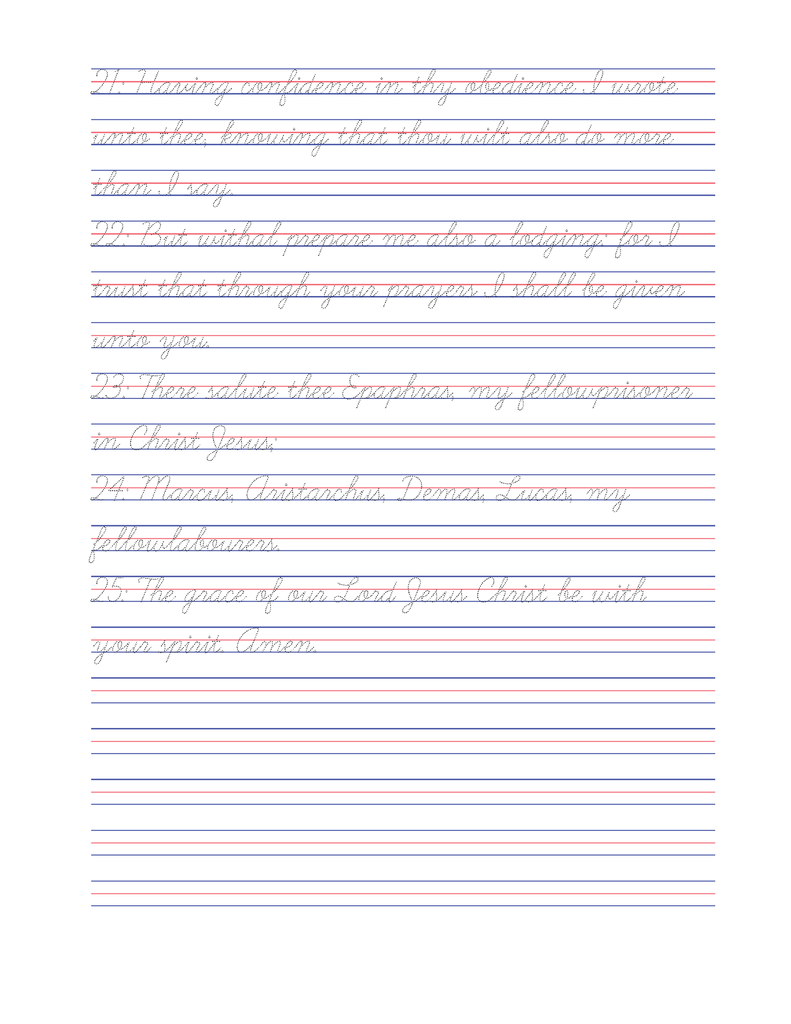 21: Having confidence in thy obedience I wrote
unto thee, knowing that thou wilt also do more
than I say.
22: But withal prepare me also a lodging: for I
trust that through your prayers I shall be given
unto you.
23: There salute thee Epaphras, my fellowprisoner
in Christ Jesus;
24: Marcus, Aristarchus, Demas, Lucas, my
fellowlabourers.
25: The grace of our Lord Jesus Christ be with
your spirit. Amen.